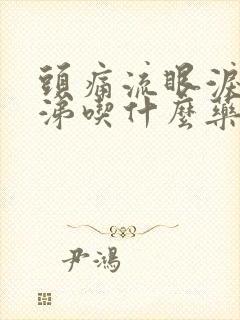 頭痛流眼淚
涕喫什麼藥
尹鴻